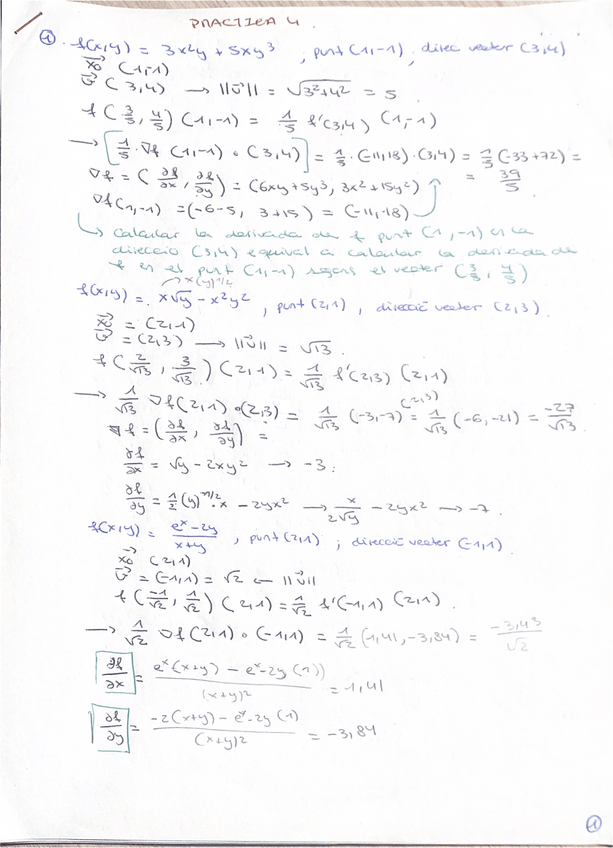 PRACTICA 4.
① · f(x,y) = 3x²y + 5xy³ , punt (1,-1) , direc vector (3,4)
x₀ (1,-1)
v (3,4) → ||v|| = √3²+4² = 5
f (3/5, 4/5) (1,-1) = 1/5 f'(3,4) (1,-1)
→ [1/5 · ∇f (1,-1) ∘ (3,4)] = 1/5 · (-11,18) · (3,4) = 1/5 (-33+72) =
∇f = (∂f/∂x, ∂f/∂y) = (6xy+5y³, 3x²+15y²) = 39/5.
∇f(1,-1) = (-6-5, 3+15) = (-11,-18)
↳ calcular la derivada de f punt (1,-1) en la
direcció (3,4) equival a calcular la derivada de
f en el punt (1,-1) segons el vector (3/5, 4/5)
→ x(y)^1/2
f(x,y) = x√y - x²y² , punt (2,1) , direcció vector (2,3).
x₀ = (2,1)
v = (2,3) → ||v|| = √13.
f (2/√13, 3/√13) (2,1) = 1/√13 f'(2,3) (2,1)
(2,3)
→ 1/√13 ∇f(2,1) ∘ (2,3) = 1/√13 (-3,-7) = 1/√13 (-6,-21) = -27/√13
∇f = (∂f/∂x, ∂f/∂y) =
∂f/∂x = √y - 2xy² → -3.
∂f/∂y = 1/2 (y)^-1/2 · x - 2yx² → x/2√y - 2yx² → -7.
f(x,y) = e^x-2y/x+y , punt (2,1) ; direcció vector (-1,1)
x₀ (2,1)
v = (-1,1) = √2 ← ||v||
f (-1/√2, 1/√2) (2,1) = 1/√2 f'(-1,1) (2,1).
→ 1/√2 ∇f(2,1) ∘ (-1,1) = 1/√2 (1,41, -3,84) = -3,43/√2
∂f/∂x = e^x·(x+y) - e^x-2y (1))/(x+y)² = 1,41
∂f/∂y = -2(x+y) - e^x-2y (1)/(x+y)² = -3,84
①